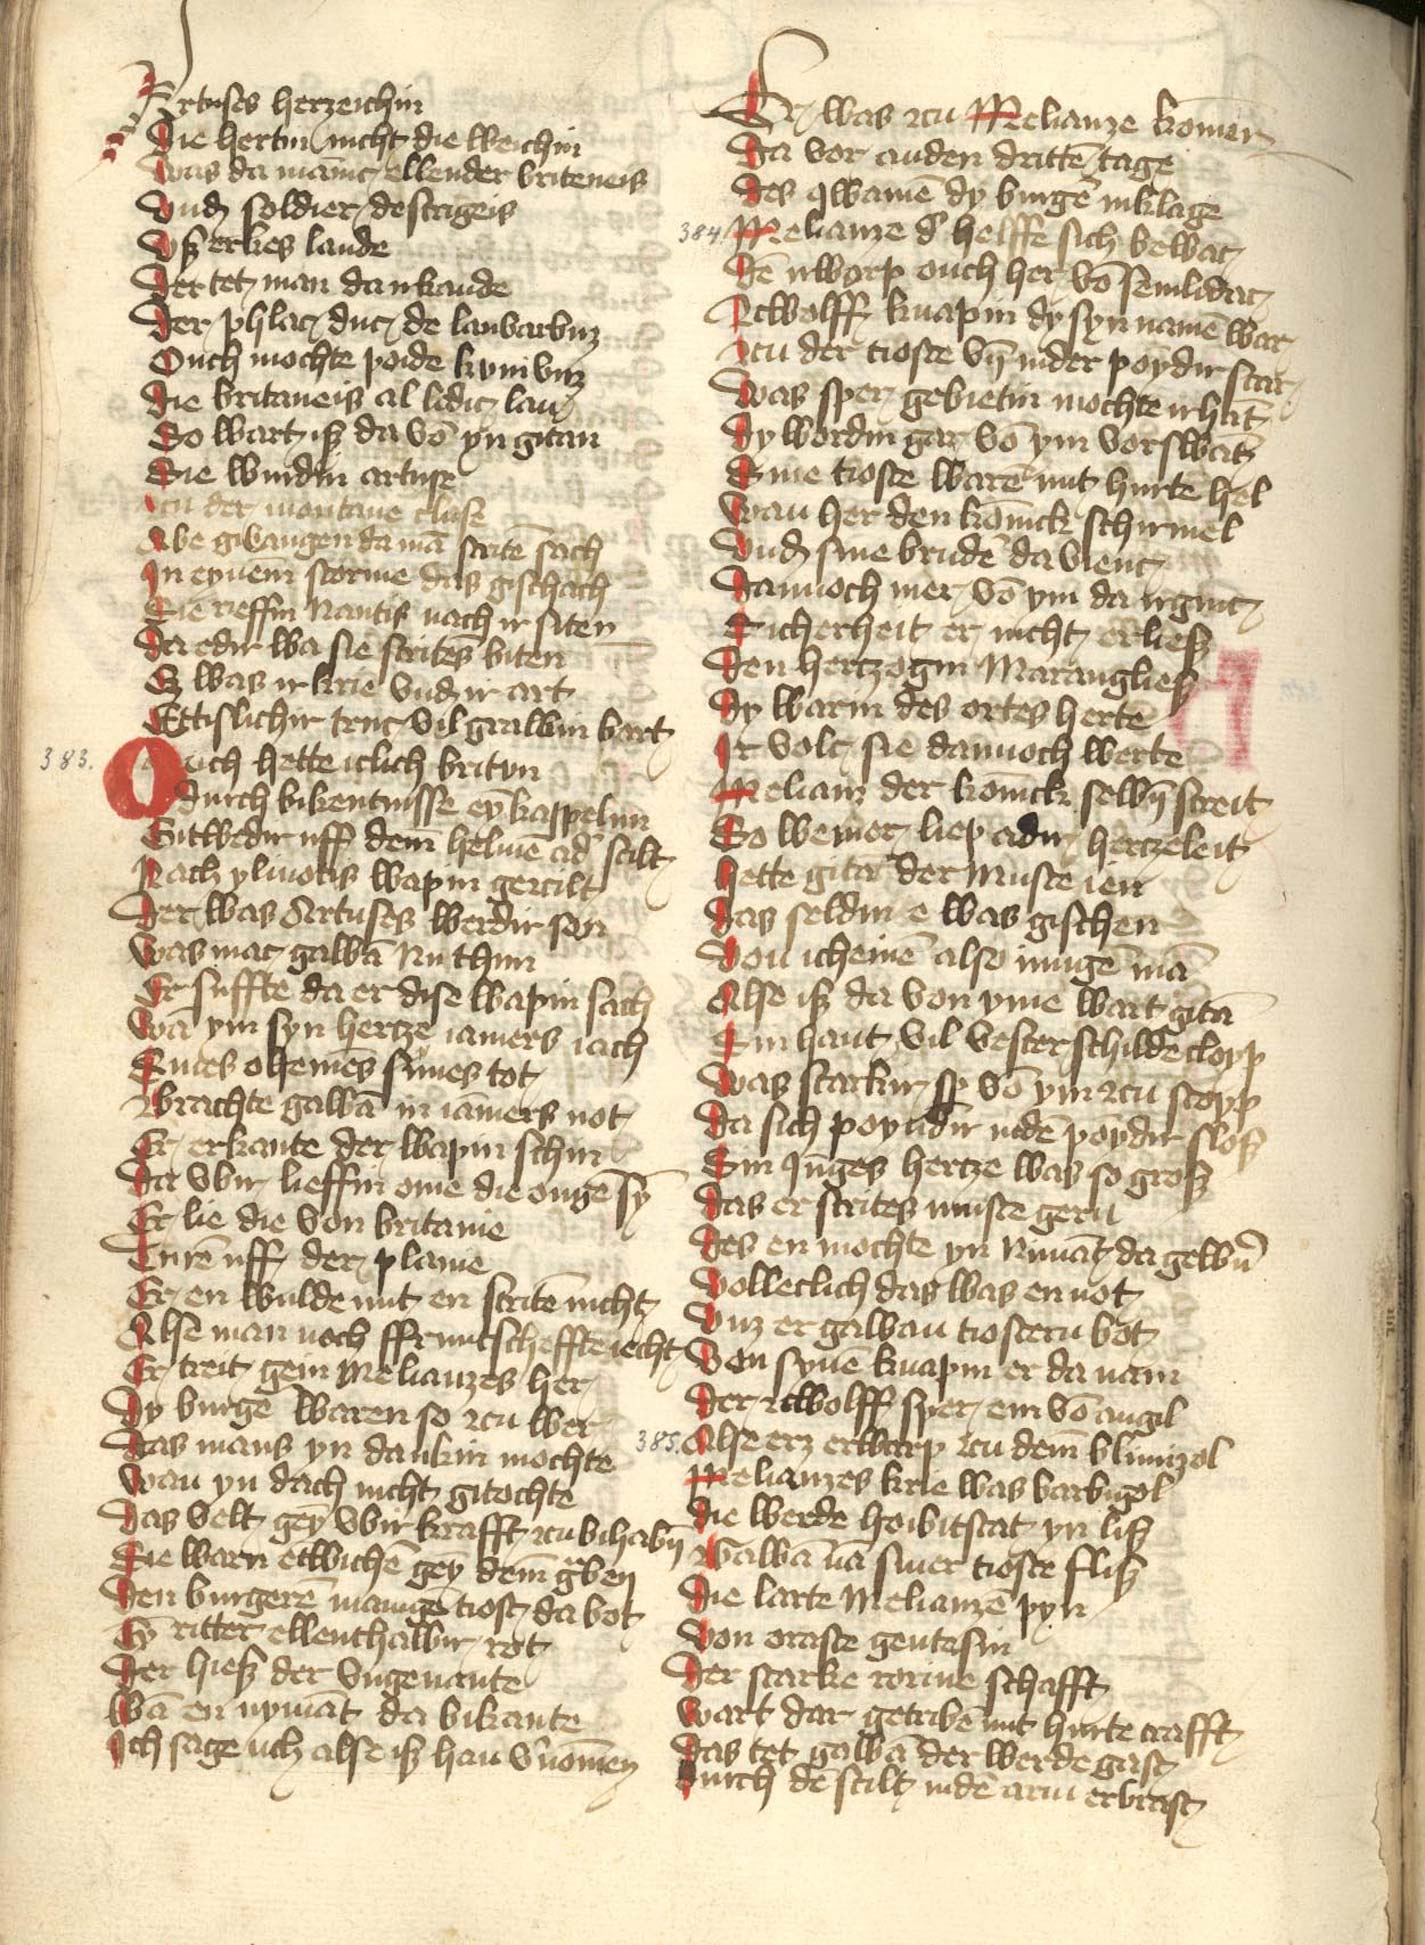 Artuses herzeichin
Die hertin nicht die weichin
Was da manic ellender briteneis
Vnd soldier destrigeis
Vſz erkes lande
Der tet man da irkande
Der phlac duc de lanvarbunz
Ouch mochte poide kvnivnz
Die britaneis al lidic lan
So wart iſz da vō yn gitan
Sie wurdin artuse
zcu der montane cluse
Abe givangen da mā stritē sach
In eynem storme das gischach
Sie rieffin Nantis nach ir siten
Da edir wa sie stritēs biten
Ez was ir krie vnd ir art
Ettislichir truc vil grawin bart
383.
Ouch hette iclich brityn
Durch bikentnisse eȳ kappelun
Eitwedir uff dem helme ad' schilt
Nach ylinotis wapin gezcilt
Der was Artuses werdir son
Was mac gawā Nu thun
Er suffte da er dise wapin sach
Wā ym syn hertze iamers iach
Sines ohemes sunes tot
Brachte gawā in iāmers not
Er erkante der wapin schin
Da vbir lieffin ome die ougē sȳ
Er lie die von britanie
Turē uff der planie
Er en wulde mit en stritē nicht
Alse man noch ffruntscheffte iecht
Er treit gein Melianzes her
Dy burgē waren so zcu wer
Das mans yn dankin mochte
Wan yn dach nicht gitochte
Das velt gey vbir krafft zcu bihabn̄
Sie warn etwichē gey dem grabē
Den burgerē manigē tiost da bot
Eȳ ritter ellenthalbir rot
Der hieſz der vngenante
Wā en nymāt da bikante
Ich sage uch alse iſz han v'nomen
Er was zcu Melianze komen
Da vor anden drittē tage
Des qwamē dy burgē inklage
384. Melianze d' helffe sich bewac
Dē irwarp ouch her vō semlidac
Zcwolff knapin dy syn namē war
zcu der tioste vn̄ inder poydir scar
Was sper gebietin mochte ir hāt
Dy wordin gar vō ym vorswāt
Sine tioste warē mit hurte hel
Wan her den konick schirniel
Vnd sine brud' da vienc
Dannoch mer vō ym da irginc
Sicherheit er nicht erlieſz
Den hertzogin Marangließ
Dy warin des ortes herte
Ir volc sie dannoch werte
Melianz der konick selbn̄ streit
So wemer liep adir hertzeleit
Hette gitā der muste ien
Das seldin e was gischen
Von icheinē also iungē mā
Alse iſz da von yme wart gitā
Sin hant vil vester schildē clopp
Was starkir sp vō ym zcu stopp
Da sich poyndir indē poydir sloſz
Sin Jūges hertze was so groſz
Das er strites muste gern
Des en mochte yn nimāt da gew'n
Volleclich das was en not
Vnz er gawan tiostern bot
Von synē knapin er da nam
Der zcwolff sper ein vō angil
385. Alse erz erwarp zcu dem blimizol
Melianzes krie was barbigol
Die werde hoibitstat yn liſz
Gawā nā siner tioste fliſz
Die larte Melianzē pyn
Von oraste gentesin
Der starke rorine schafft
Wart dar getribē mit hurte crafft
Das tet gawā der werde gast
Durch dē schilt indē arm erbrast